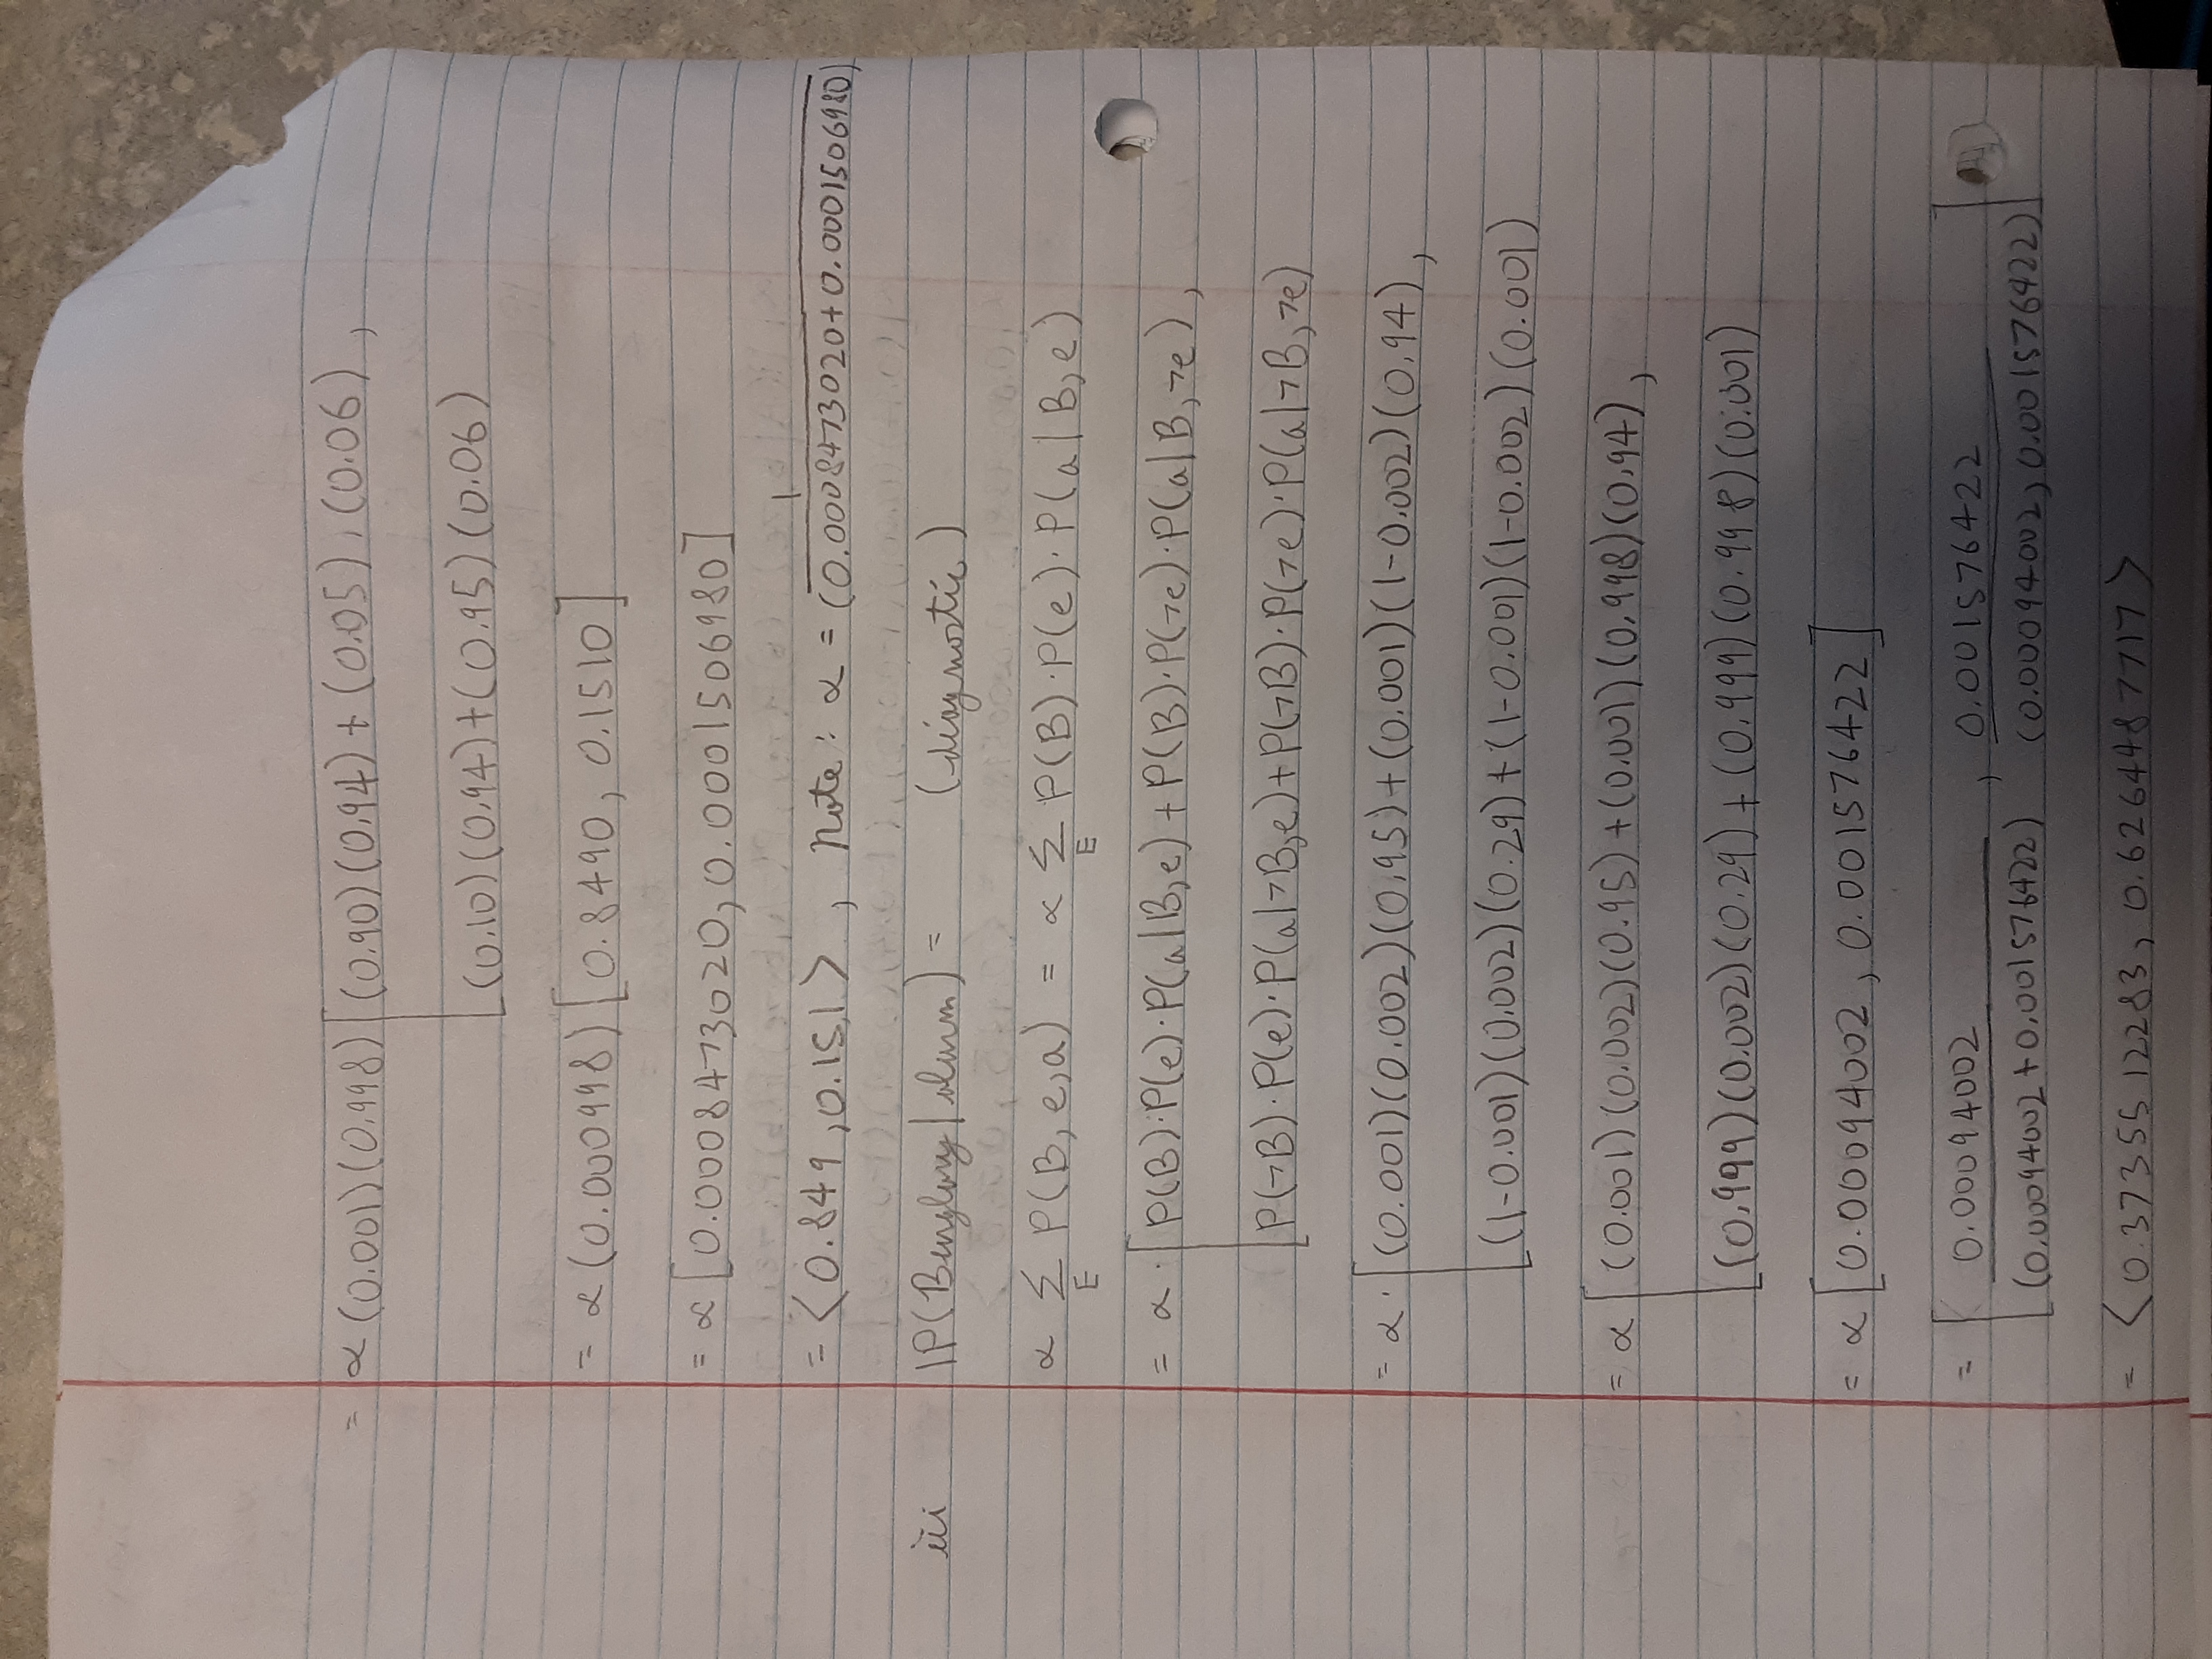 = α (0.001)(0.998) [ (0.90)(0.94) + (0.05).(0.06) ,
(0.10)(0.94)+(0.95)(0.06)
= α (0.000998) [0.8490, 0.1510]
= α [0.0008473020, 0.0001506980]
= <0.849, 0.151> , Note: α = 1/(0.0008473020+0.0001506980)
iii IP(Burglary | alarm) = (diagnostic)
α Σ_E P(B, e, a) = α Σ_E P(B)·P(e)·P(a | B, e)
= α · [ P(B)·P(e)·P(a | B, e) + P(B)·P(¬e)·P(a | B, ¬e) ,
P(¬B)·P(e)·P(a | ¬B, e) + P(¬B)·P(¬e)·P(a | ¬B, ¬e)
= α · [ (0.001)(0.002)(0.95)+(0.001)(1-0.002)(0.94) ,
(1-0.001)(0.002)(0.29)+(1-0.001)(1-0.002)(0.001)
= α [ (0.001)(0.002)(0.95)+(0.001)(0.998)(0.94) ,
(0.999)(0.002)(0.29)+(0.999)(0.998)(0.001)
= α [0.00094002, 0.001576422]
= [ 0.00094002/(0.00094002+0.001576422) , 0.001576422/(0.00094002, 0.001576422) ]
= <0.3735512283, 0.6264487717>